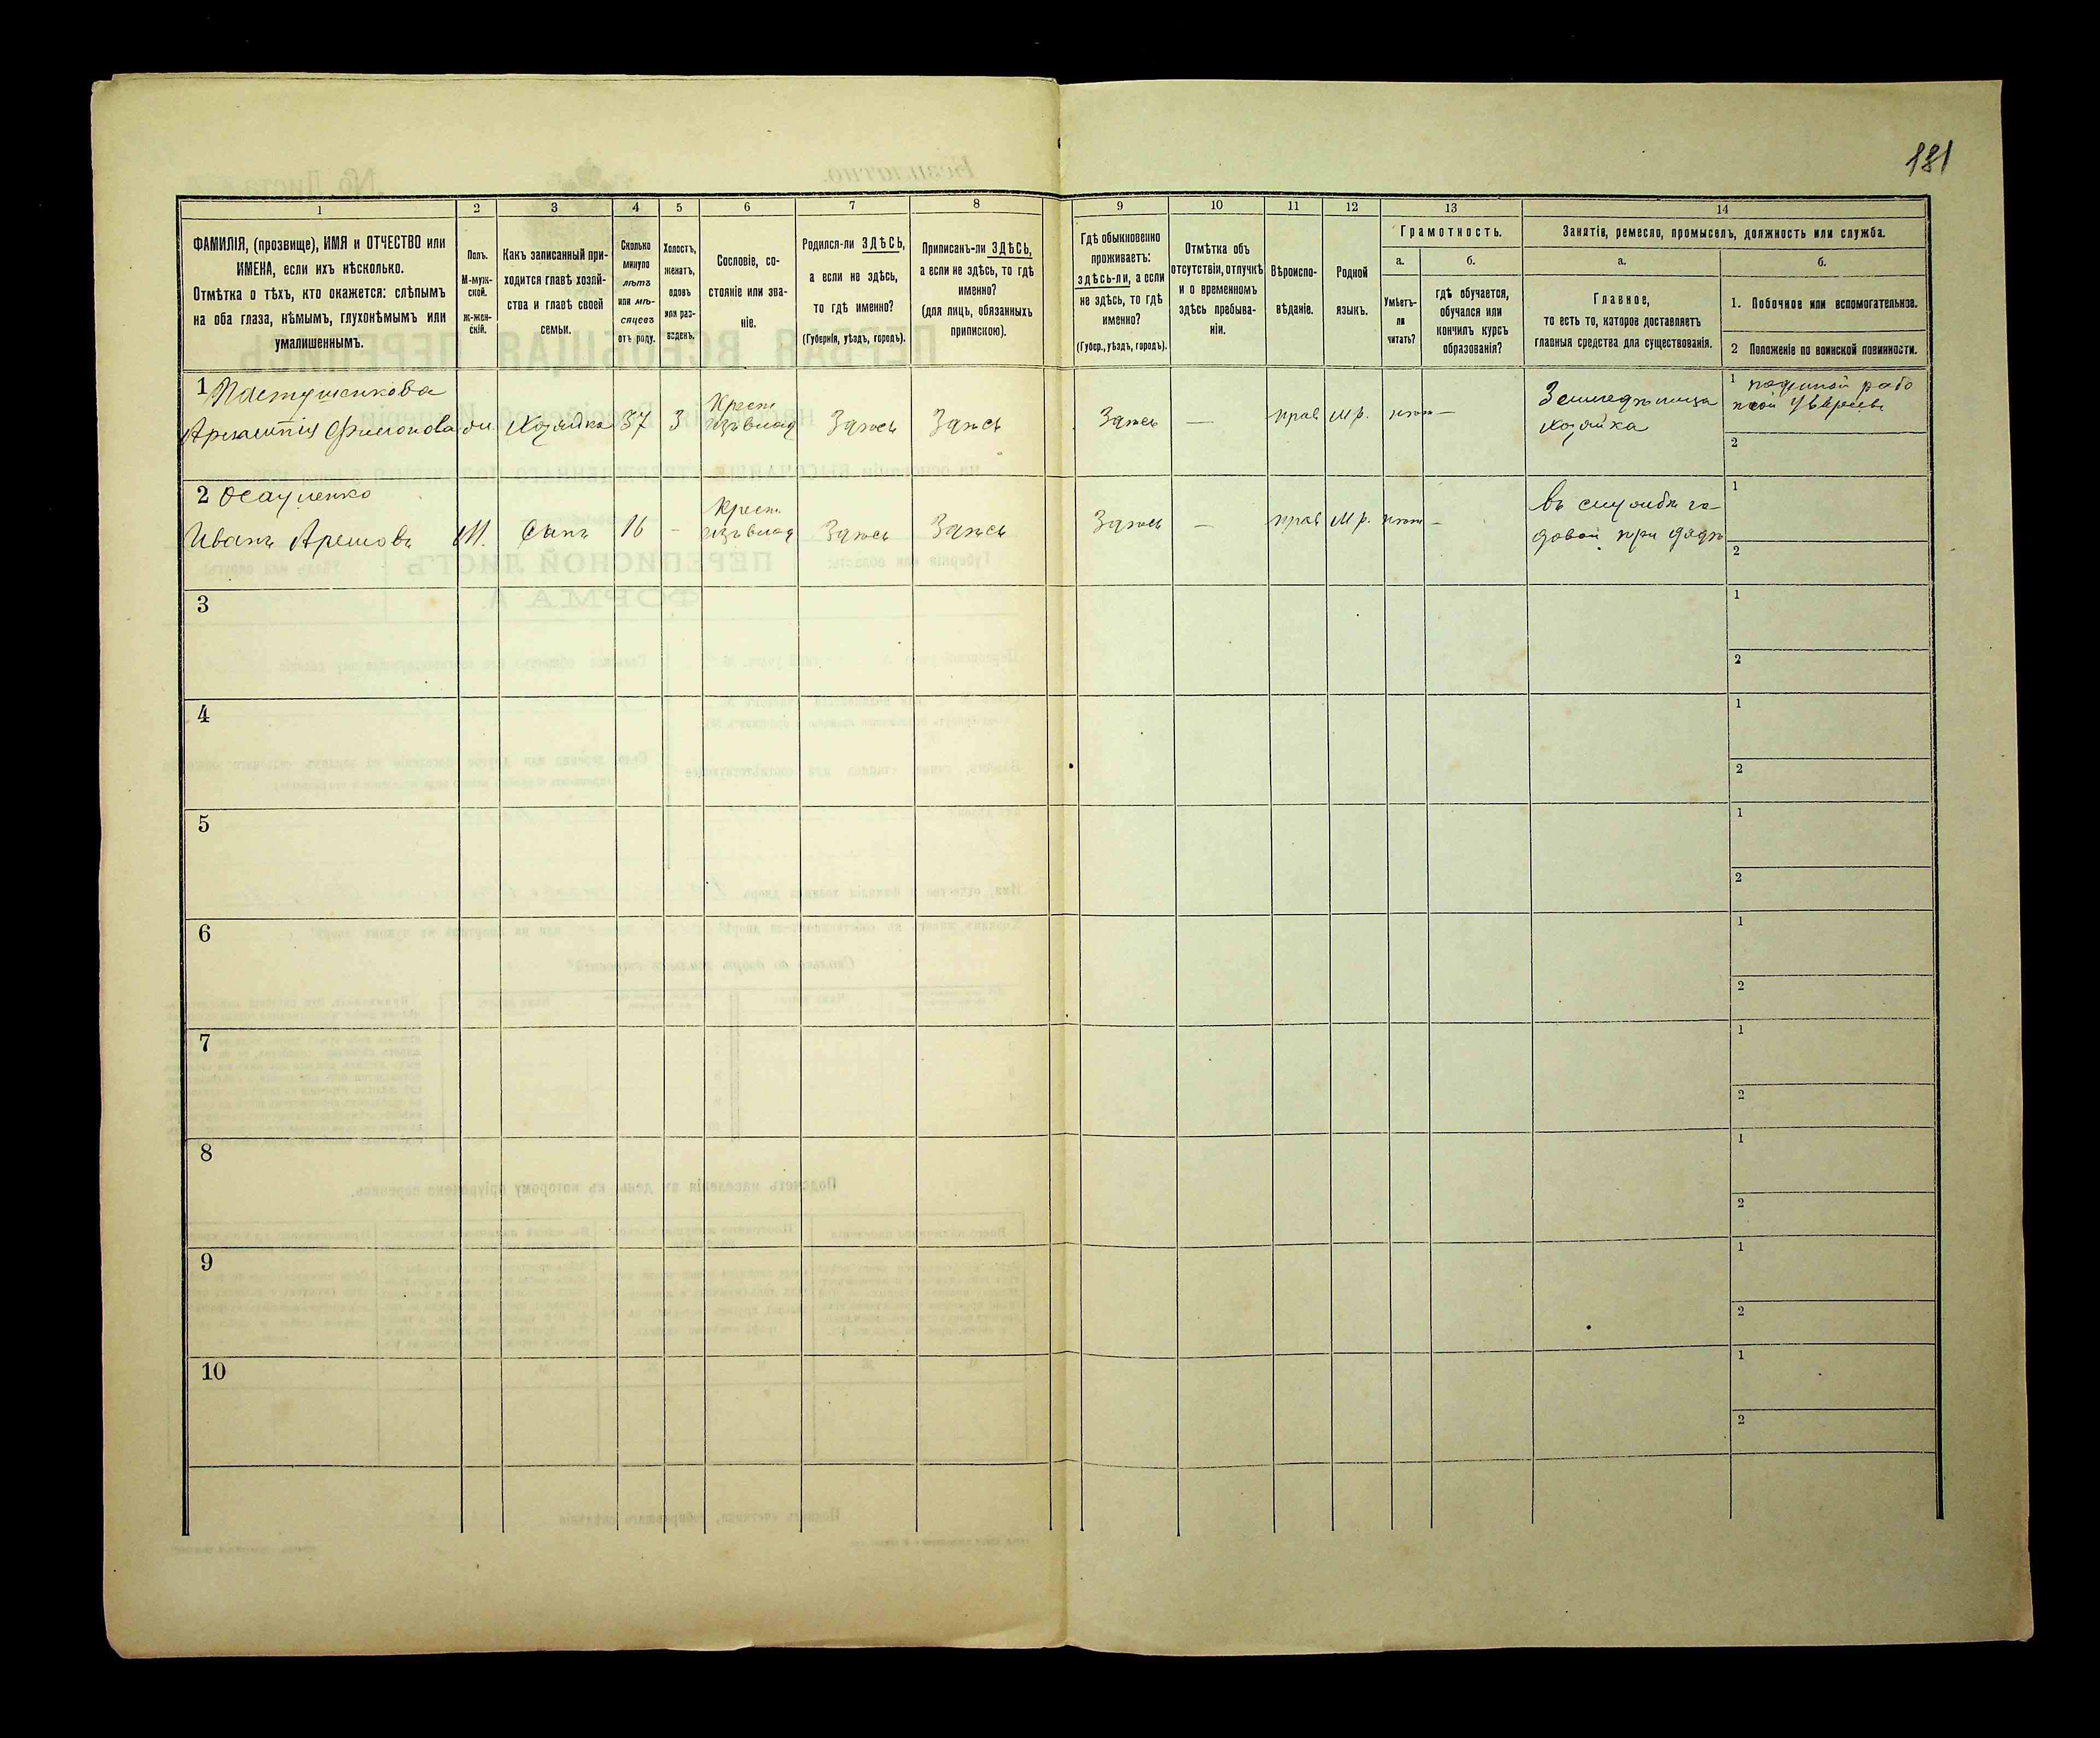 181
1
2
3
4
5
6
7
8
9
10
11
12
13
14
ФАМИЛІЯ, (прозвище), ИМЯ и ОТЧЕСТВО или
ИМЕНА, если ихъ нѣсколько.
Отмѣтка о тѣхъ, кто окажется: слѣпымъ
на оба глаза, нѣмымъ, глухонѣмымъ или
умалишеннымъ.
Полъ.
М-муж-
ской.
Ж-жен-
скій.
Какъ записанный при-
ходится главѣ хозяй-
ства и главѣ своей
семьи.
Сколько
минуло
лѣтъ
или мѣ-
сяцевъ
отъ роду.
Холостъ,
женатъ,
вдовъ
или раз-
веденъ.
Сословіе, со-
стояніе или зва-
ніе.
Родился-ли ЗДѢСЬ,
а если не здѣсь,
то гдѣ именно?
(Губернія, уѣздъ, городъ).
Приписанъ-ли ЗДѢСЬ,
а если не здѣсь, то гдѣ
именно?
(для лицъ, обязанныхъ
припискою).
Гдѣ обыкновенно
проживаетъ:
здѣсь-ли, а если
не здѣсь, то гдѣ
именно?
(Губер., уѣздъ, городъ).
Отмѣтка объ
отсутствіи, отлучкѣ
и о временномъ
здѣсь пребыва-
ніи.
Вѣроиспо-
вѣданіе.
Родной
языкъ.
Грамотность.
а.
Умѣетъ-
ли
читать?
б.
гдѣ обучается,
обучался или
кончилъ курсъ
образованія?
Занятіе, ремесло, промыселъ, должность или служба.
а.
Главное,
то есть то, которое доставляетъ
главныя средства для существованія.
б.
1. Побочное или вспомогательное.
2 Положеніе по воинской повинности.
1 Пастушенкова
Филонова
Хозяйка
37
З
Крест
изъ влад
Здѣсь
Здѣсь
Здѣсь
—
прав
м р.
нѣт
—
Земледѣлица
хозяйка
1
2
2 Осауленко
Иванъ
М.
Сынъ
16
-
Крест
изъ влад
Здѣсь
Здѣсь
Здѣсь
—
прав
м р.
нѣт
—
въ службѣ го-
довой при дядѣ
1
2
3
1
2
4
1
2
5
1
2
6
1
2
7
1
2
8
1
2
9
1
2
10
1
2